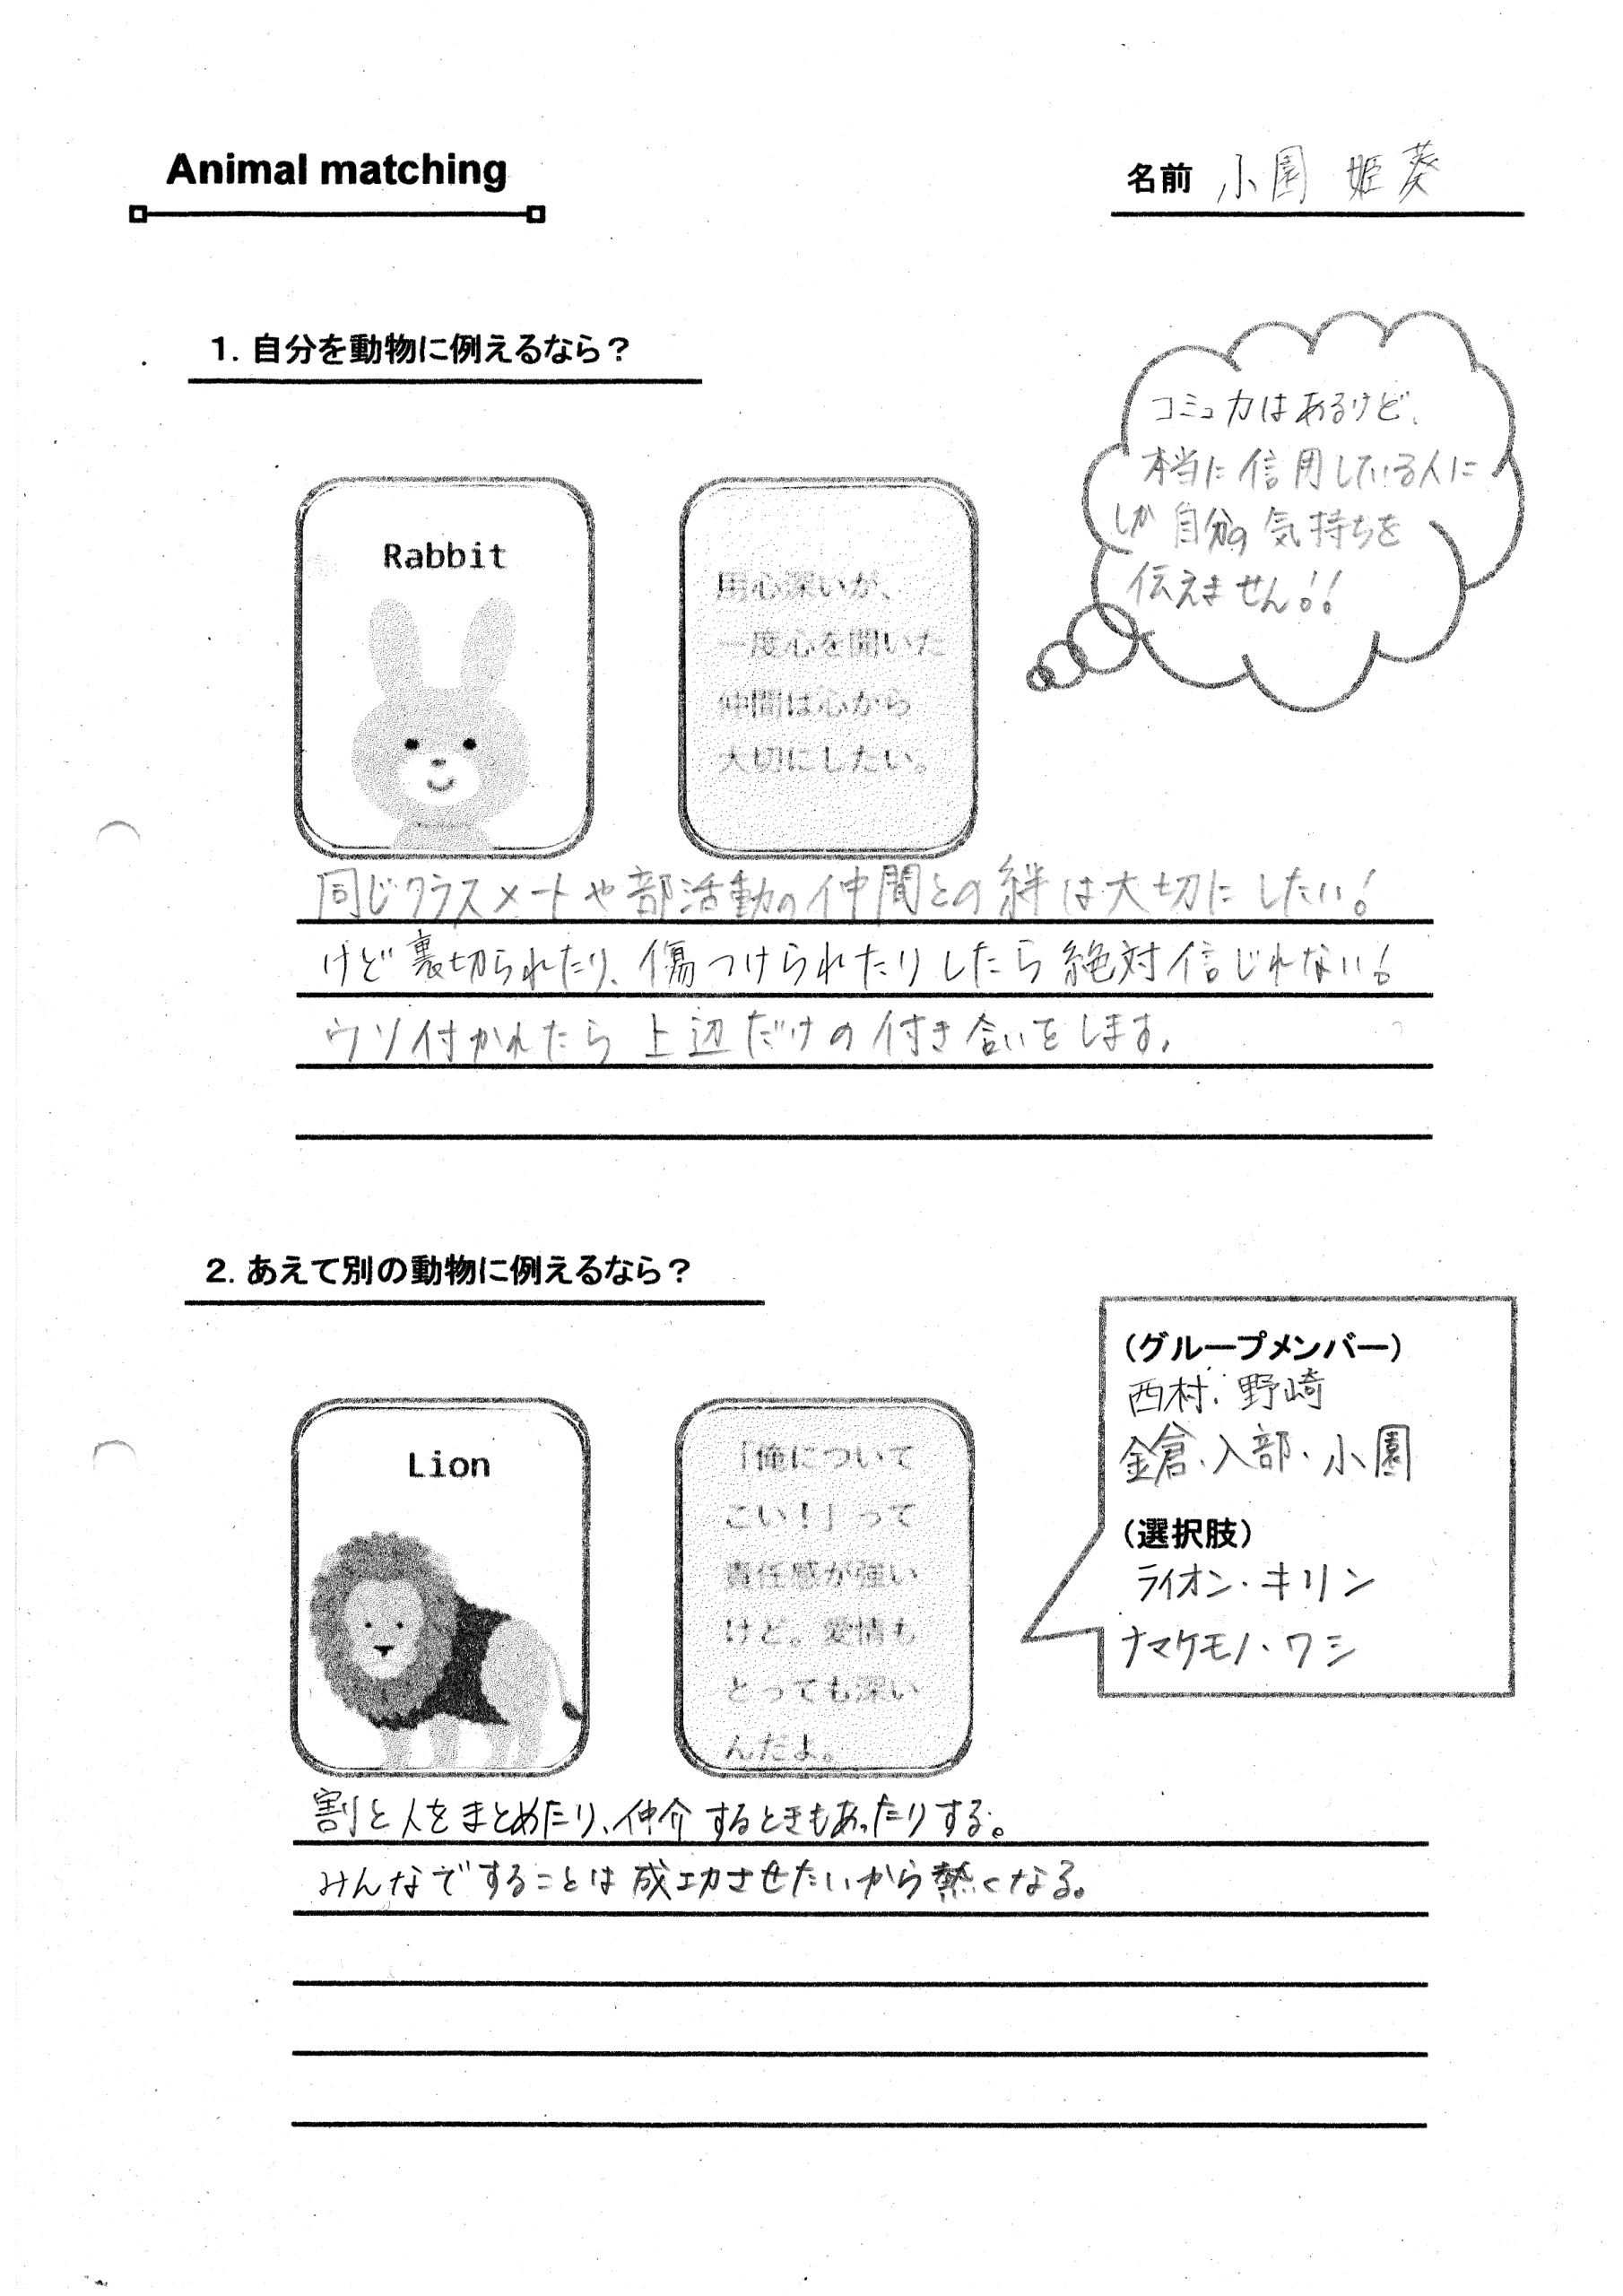 Animal matching
名前 小園 姫葵
1. 自分を動物に例えるなら？
コミュ力はあるけど、
本当に信用している人に
しか自分の気持ちを
伝えません!!
Rabbit
用心深いが、
一度心を開いた
仲間は心から
大切にしたい。
同じクラスメートや部活動の仲間との絆は大切にしたい!
けど裏切られたり、傷つけられたりしたら絶対信じれない!
ウソ付かれたら上辺だけの付き合いをします。
2. あえて別の動物に例えるなら？
Lion
「俺について
こい！」って
責任感が強い
けど。愛情も
とっても深い
んだよ。
（グループメンバー）
西村・野崎
金倉・入部・小園
（選択肢）
ライオン・キリン
ナマケモノ・ワシ
割と人をまとめたり、仲介するときもあったりする。
みんなですることは成功させたいから熱くなる。